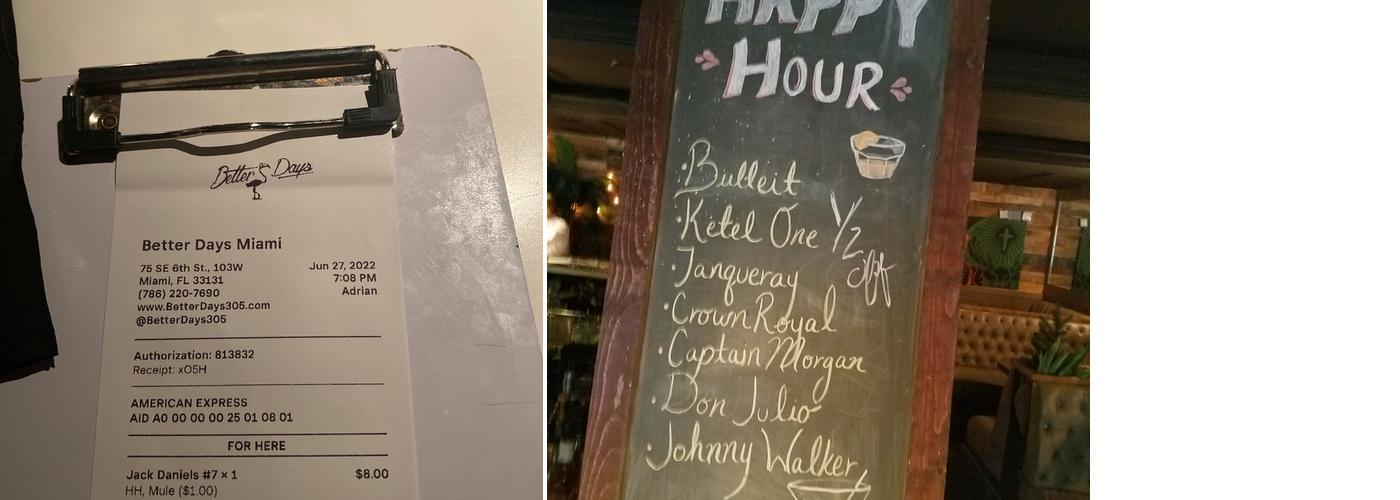 Better Days
Better Days Miami
75 SE 6th St., 103W
Miami, FL 33131
(786) 220-7690
www.BetterDays305.com
@BetterDays305
Jun 27, 2022
7:08 PM
Adrian
Authorization: 813832
Receipt: xO5H
AMERICAN EXPRESS
AID A0 00 00 00 25 01 08 01
FOR HERE
Jack Daniels #7 × 1 $8.00
HH, Mule ($1.00)
HAPPY
HOUR
·Bulleit
·Ketel One
·Tanqueray
·Crown Royal
·Captain Morgan
·Don Julio
·Johnny Walker
1/2
off